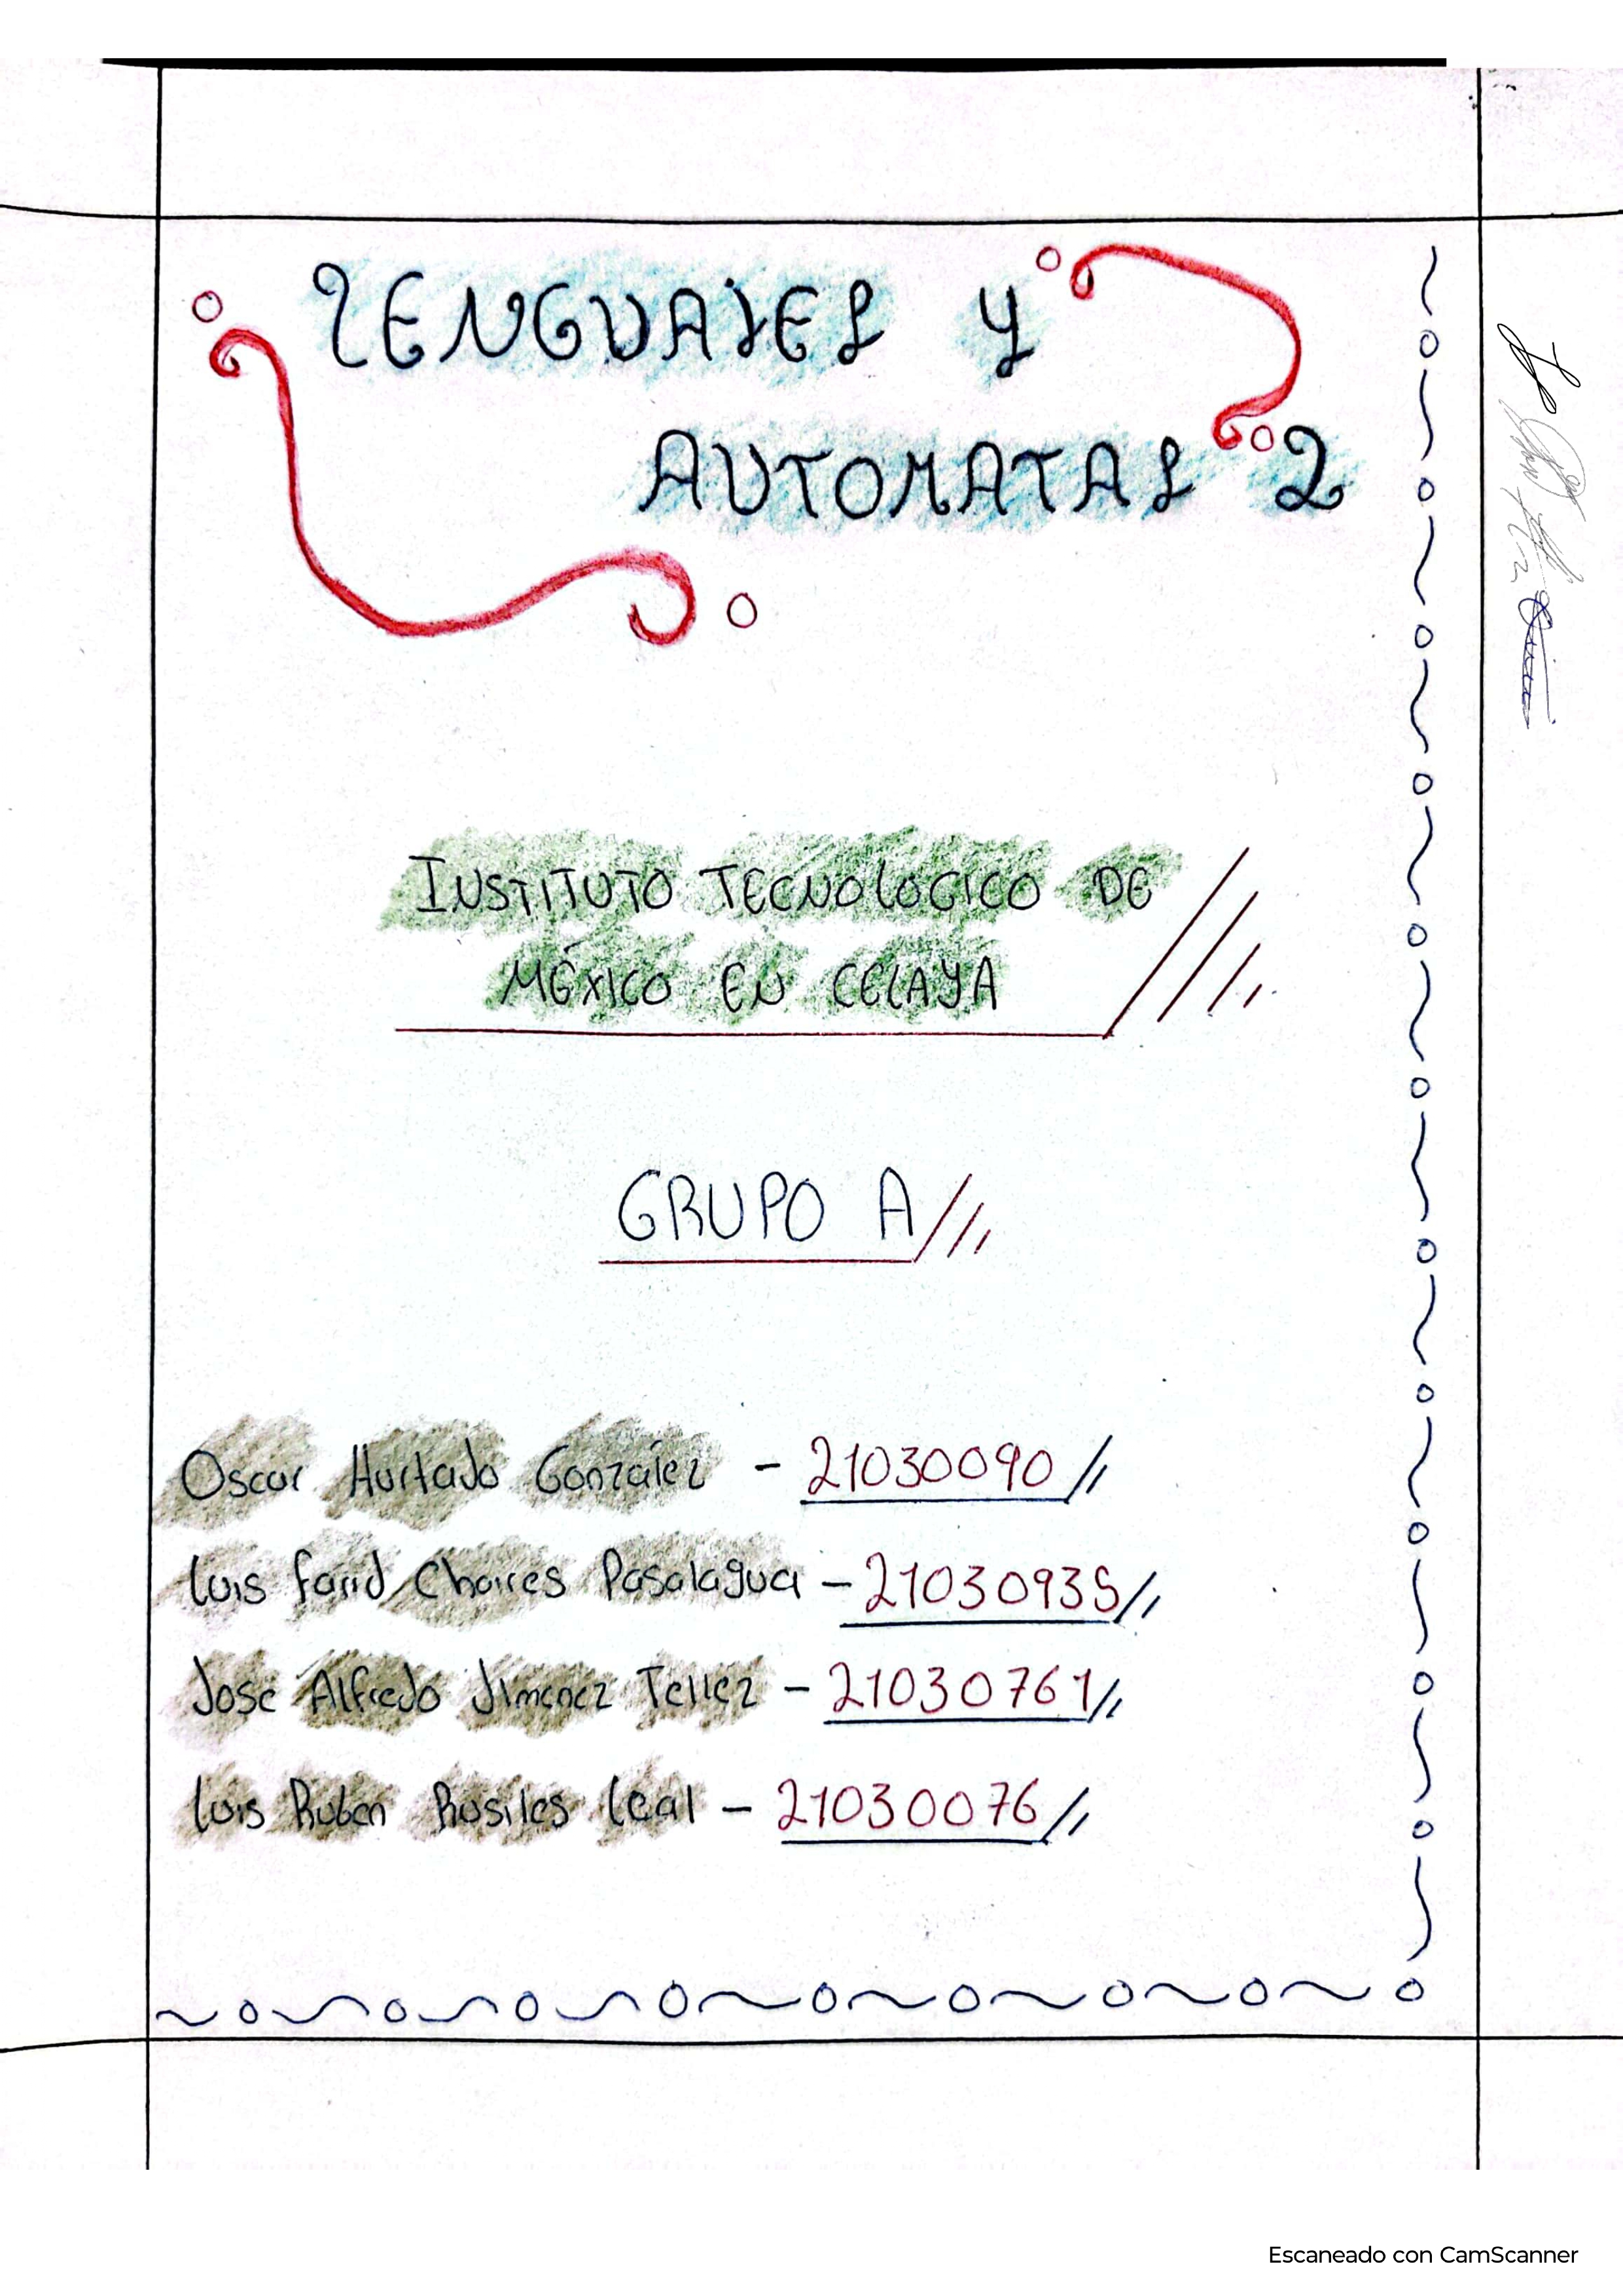 LENGUAJES Y
AUTOMATAS 2
INSTITUTO TECNOLOGICO DE
MÉXICO EN CELAYA
GRUPO A
Oscar Hurtado González - 21030090
Luis Farid Chaires Pasalagua - 21030935
Jose Alfredo Jimenez Tellez - 21030761
Luis Ruben Rosiles Leal - 21030076
Escaneado con CamScanner